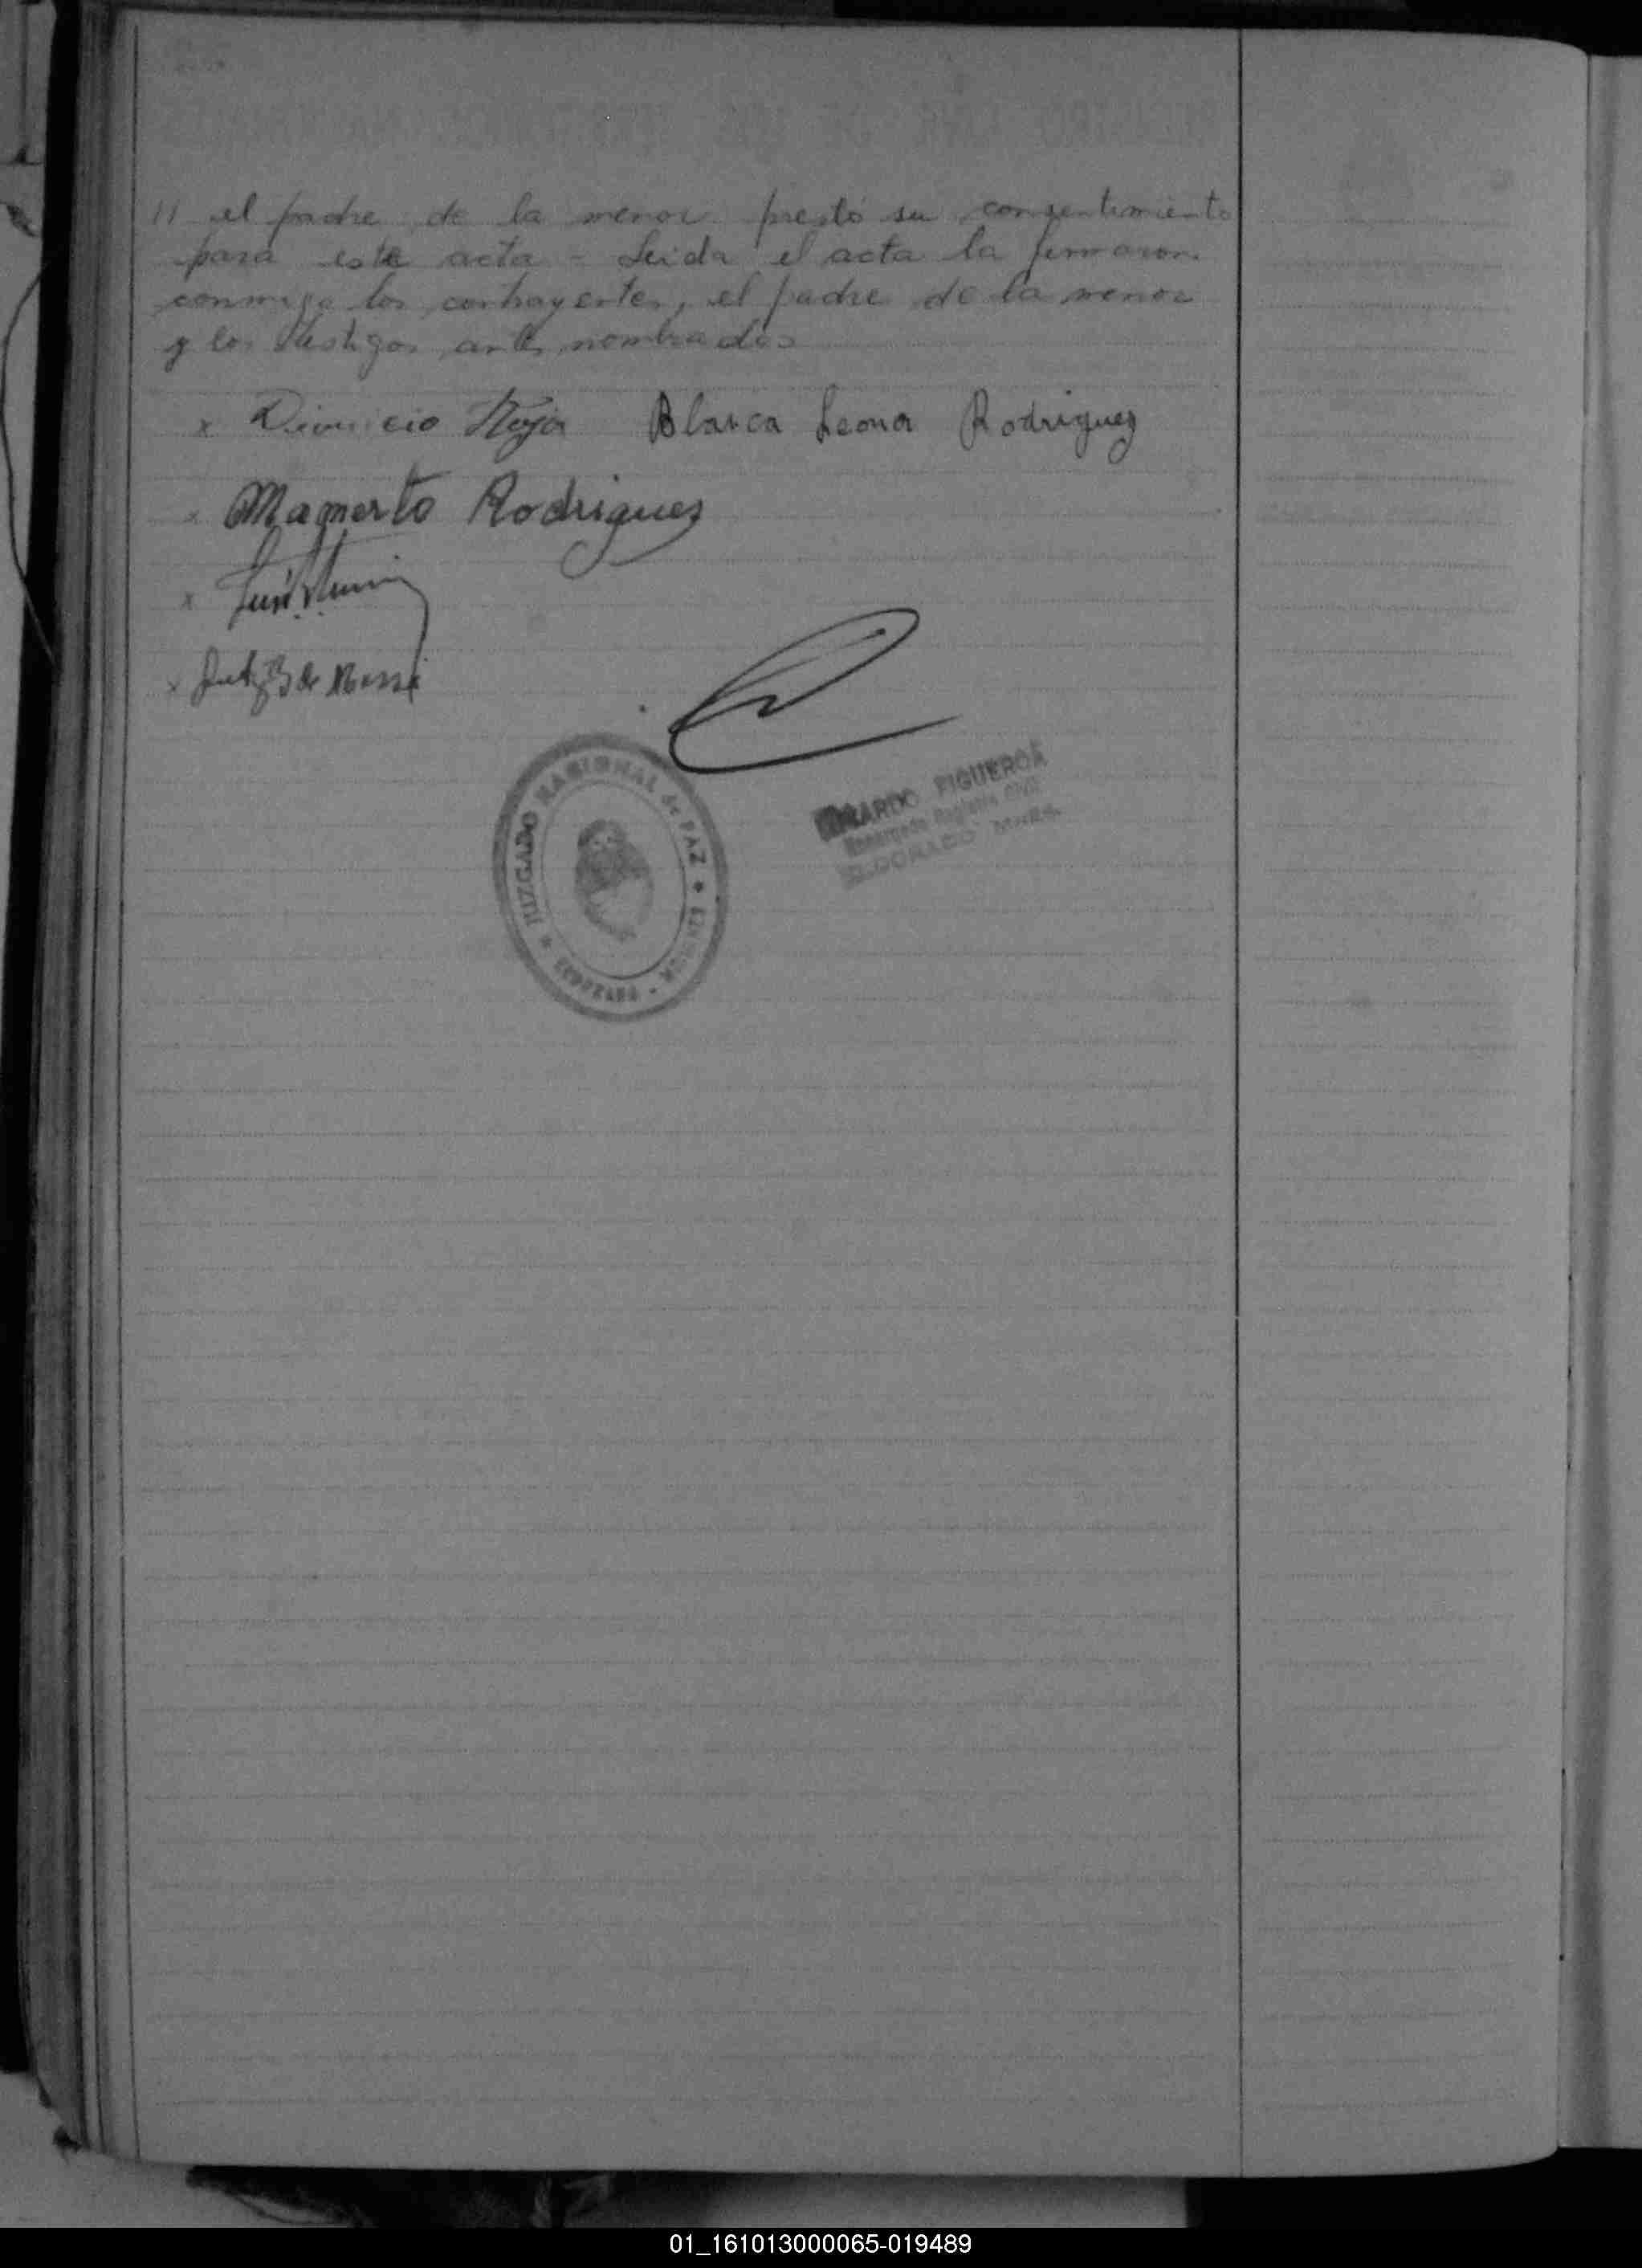 11 el padre de la menor prestó su consentimiento
para este acta - Leida el acta la firmaron
conmigo los contrayentes, el padre de la menor
y los testigos antes nombrados
x Dionicio Blanca Leona Rodriguez
x Mamerto Rodrigues
x Luis
x de
JUZGADO NACIONAL de PAZ * * ELDORADO
FIGUEROA
Encargado Registro Civil
ELDORADO
01_161013000065-019489